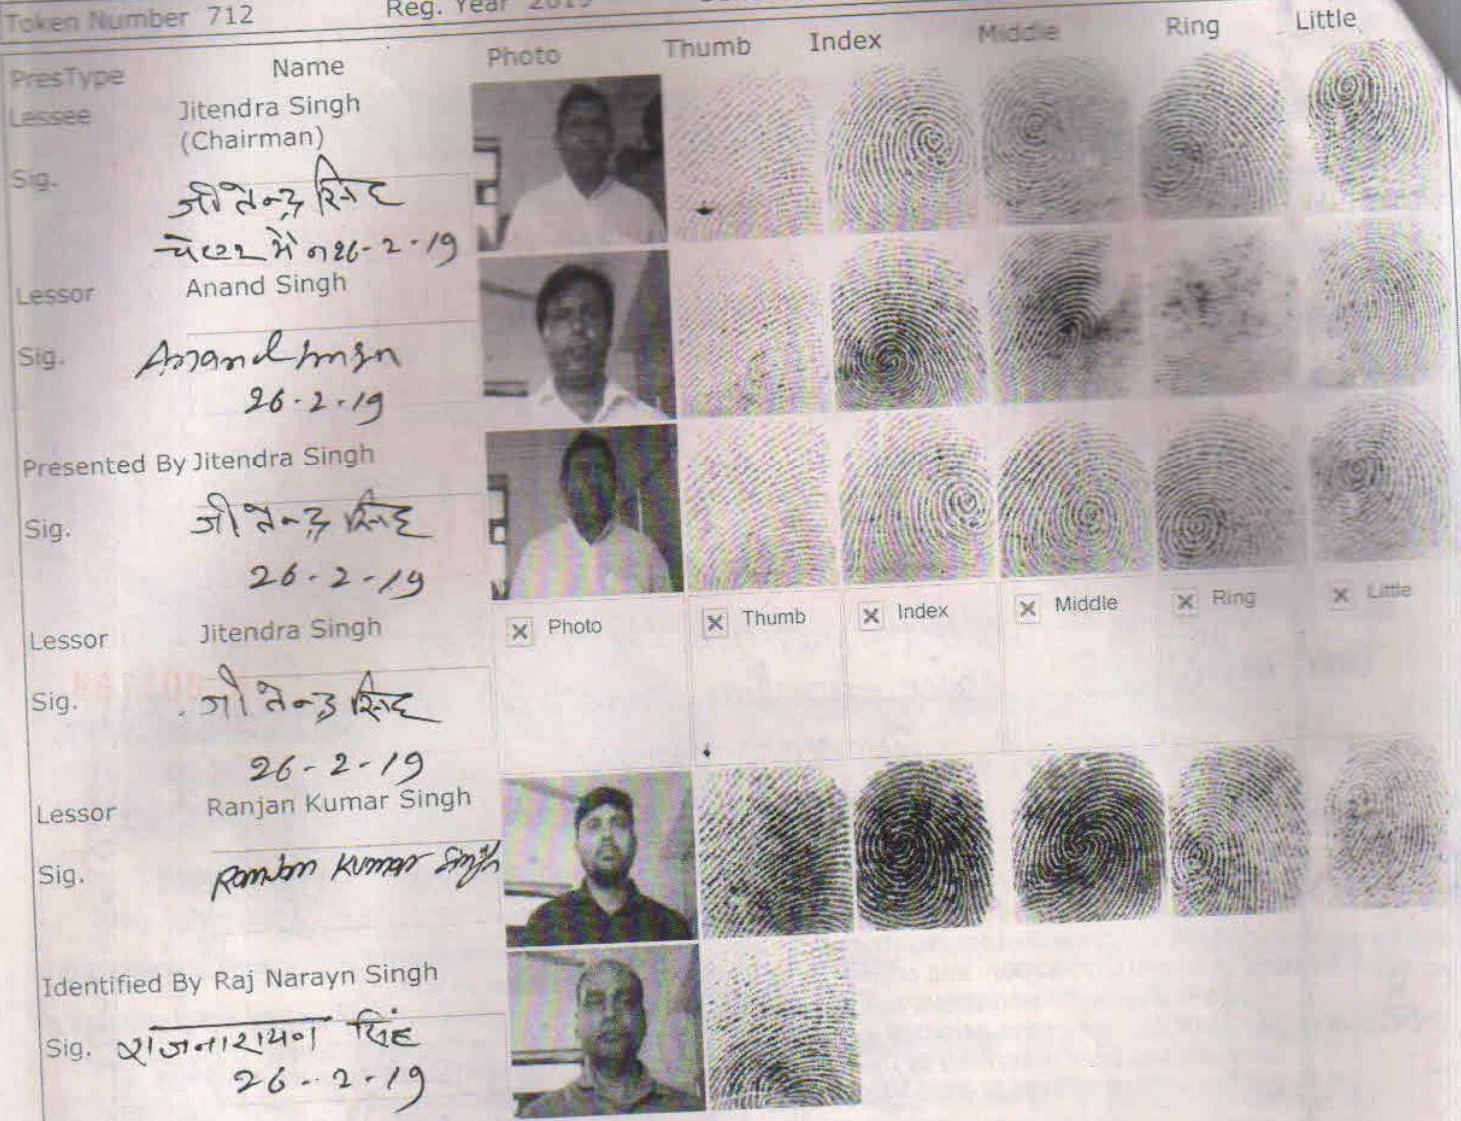 Token Number 712 Reg. Year 2019
PresType Name Photo Thumb Index Middle Ring Little
Lessee Jitendra Singh
(Chairman)
Sig. जीतेन्द्र सिंह
26-2-19
Lessor Anand Singh
Sig. Anand
26.2.19
Presented By Jitendra Singh
Sig. जीतेन्द्र सिंह
26-2-19
Lessor Jitendra Singh Photo Thumb Index Middle Ring Little
Sig. जीतेन्द्र सिंह
26-2-19
Lessor Ranjan Kumar Singh
Sig. Ranjan Kumar Singh
Identified By Raj Narayn Singh
Sig. राजनारायण सिंह
26-2-19